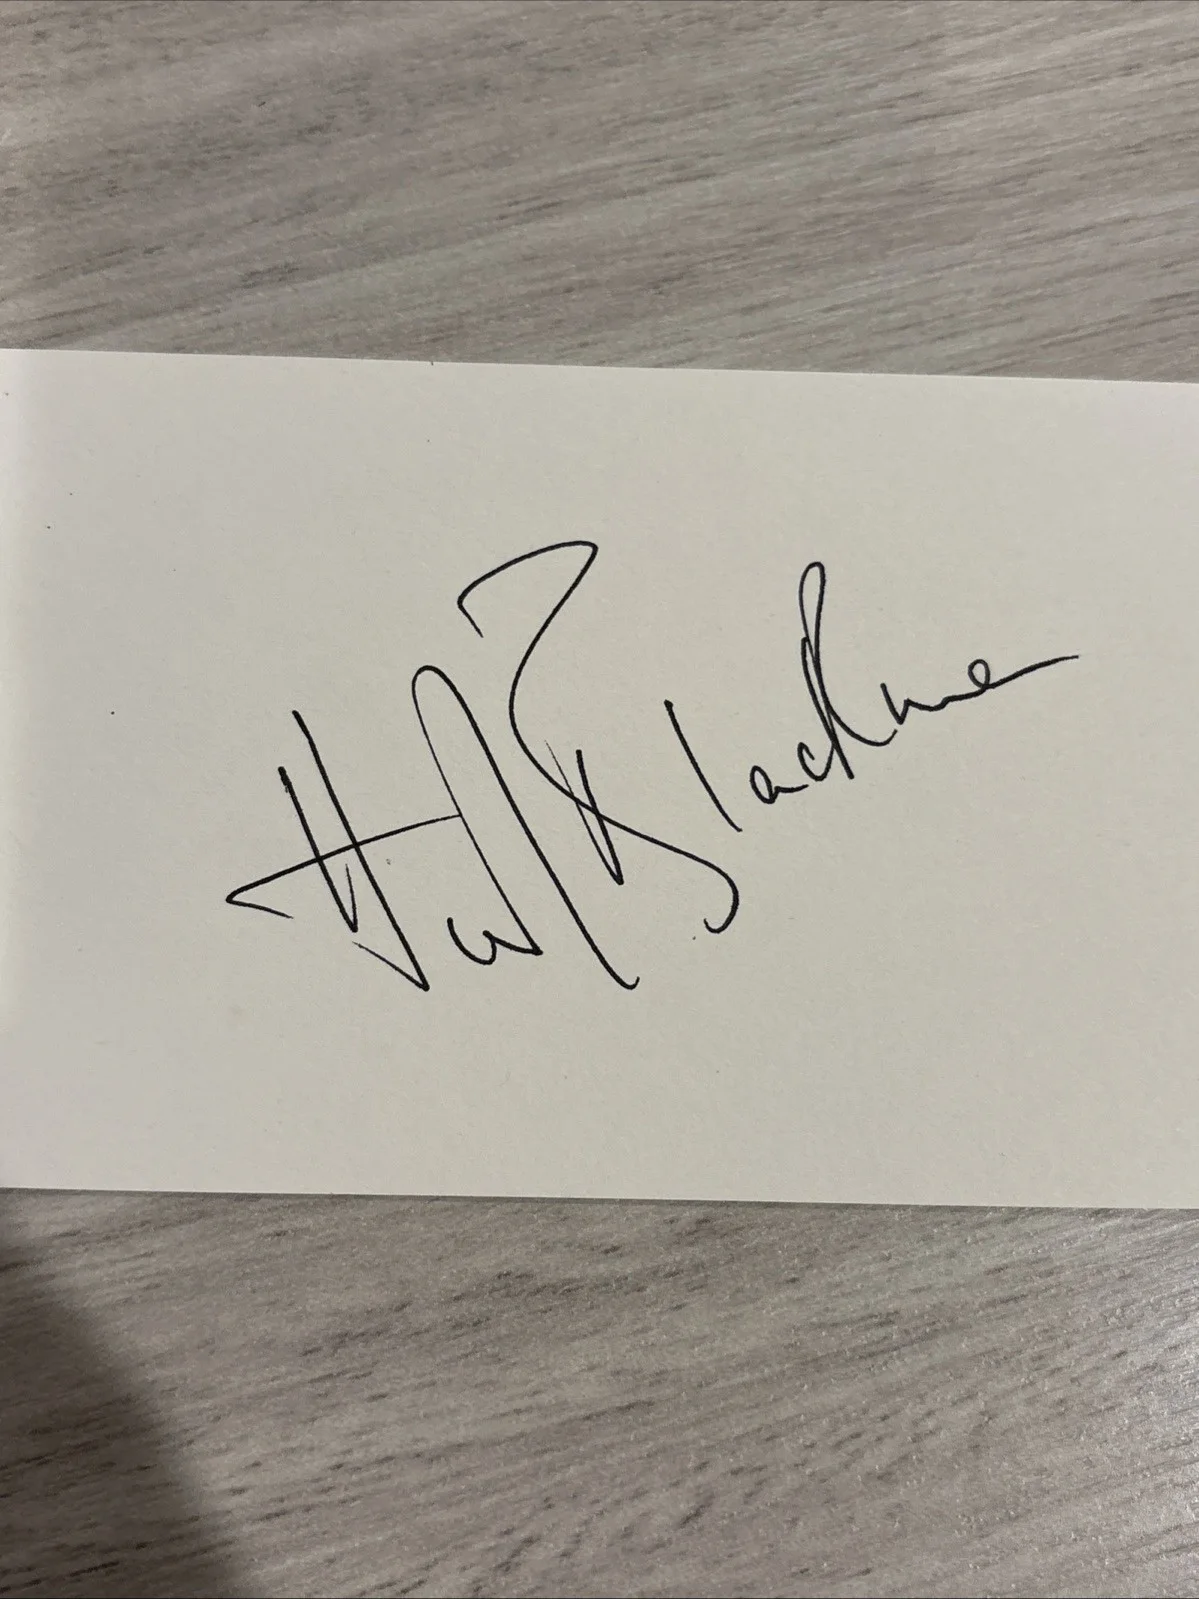 Honor Blackman